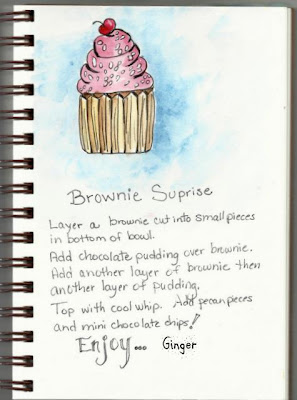 Brownie Suprise
Layer a brownie cut into small pieces
in bottom of bowl.
Add chocolate pudding over brownie.
Add another layer of brownie then
another layer of pudding.
Top with cool whip. Add pecan pieces
and mini chocolate chips!
Enjoy... Ginger